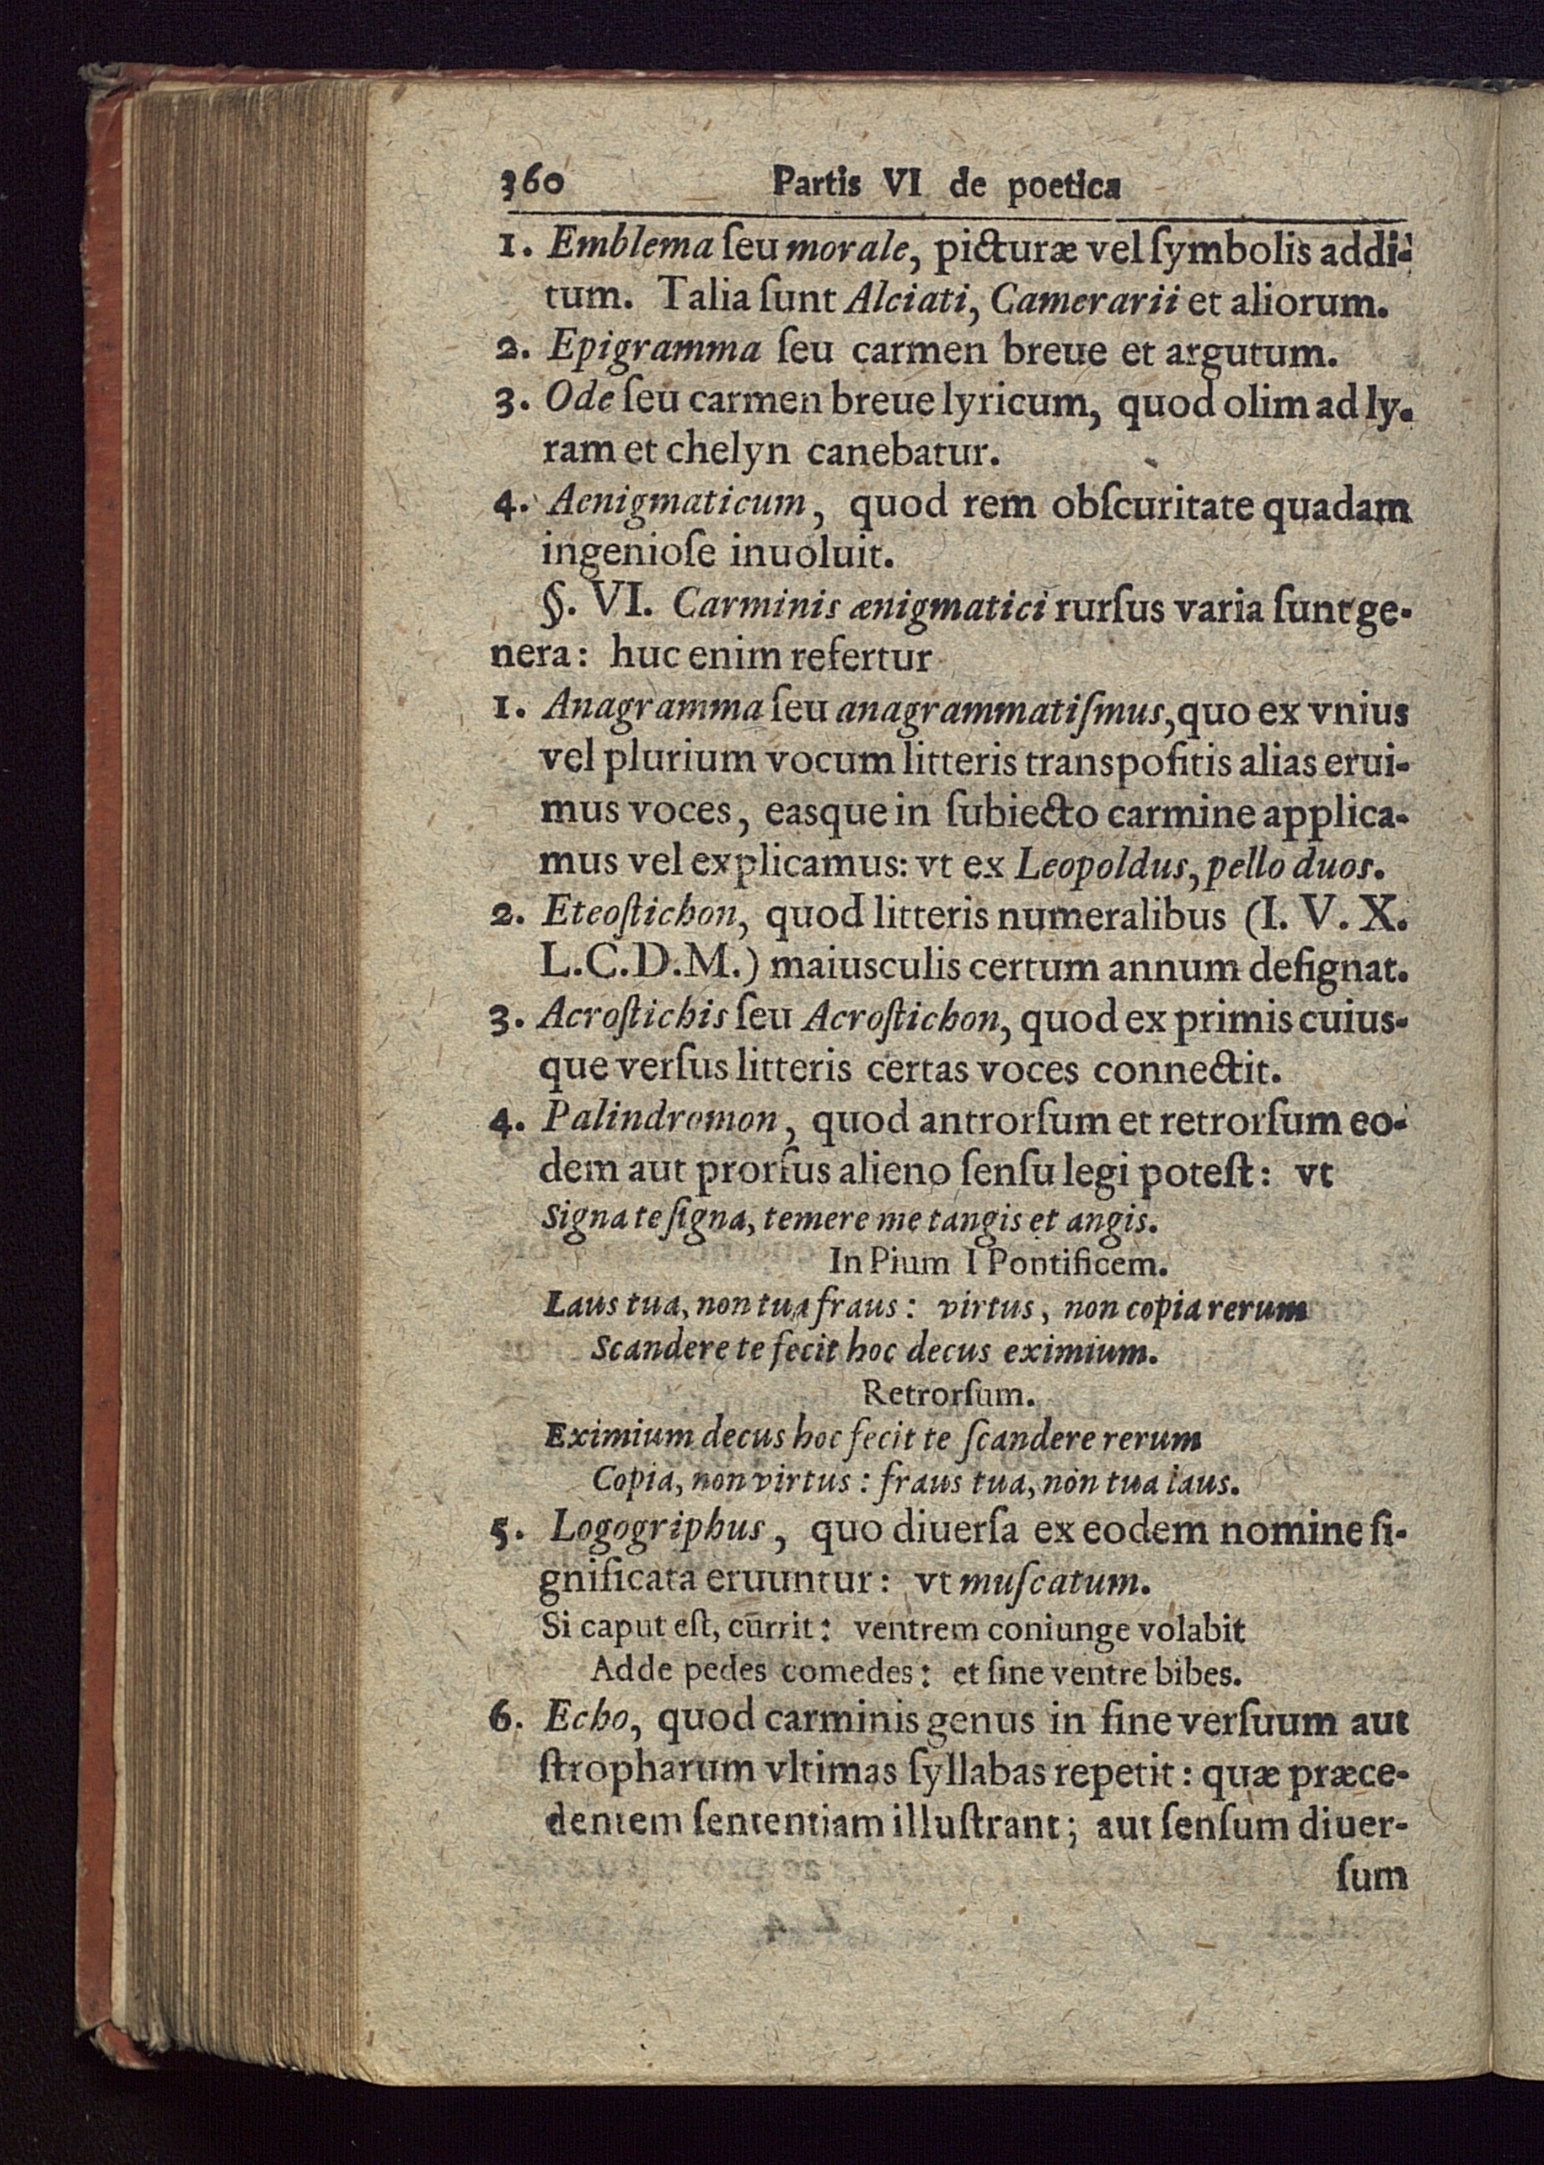 360 Partis VI de poetica
1. Emblema ſeu morale, picturæ vel ſymbolis addi-
tum. Talia ſunt Alciati, Camerarii et aliorum.
2. Epigramma ſeu carmen breue et argutum.
3. Ode ſeu carmen breue lyricum, quod olim ad ly-
ram et chelyn canebatur.
4. Aenigmaticum, quod rem obſcuritate quadam
ingenioſe inuoluit.
§. VI. Carminis ænigmatici rurſus varia ſunt ge-
nera: huc enim refertur
1. Anagramma ſeu anagrammatiſmus, quo ex vnius
vel plurium vocum litteris transpoſitis alias erui-
mus voces, easque in ſubiecto carmine applica-
mus vel explicamus: vt ex Leopoldus, pello duos.
2. Eteoſtichon, quod litteris numeralibus (I. V. X.
L.C.D.M.) maiusculis certum annum deſignat.
3. Acroſtichis ſeu Acroſtichon, quod ex primis cuius-
que verſus litteris certas voces connectit.
4. Palindromon, quod antrorſum et retrorſum eo-
dem aut prorſus alieno ſenſu legi poteſt: vt
Signa te ſigna, temere me tangis et angis.
In Pium I Pontificem.
Laus tua, non tua fraus: virtus, non copia rerum
Scandere te fecit hoc decus eximium.
Retrorſum.
Eximium decus hoc fecit te ſcandere rerum
Copia, non virtus: fraus tua, non tua laus.
5. Logogriphus, quo diuerſa ex eodem nomine ſi-
gnificata eruuntur: vt muſcatum.
Si caput eſt, currit: ventrem coniunge volabit
Adde pedes comedes: et ſine ventre bibes.
6. Echo, quod carminis genus in fine verſuum aut
ſtropharum vltimas ſyllabas repetit: quæ præce-
dentem ſententiam illuſtrant; aut ſenſum diuer-
ſum